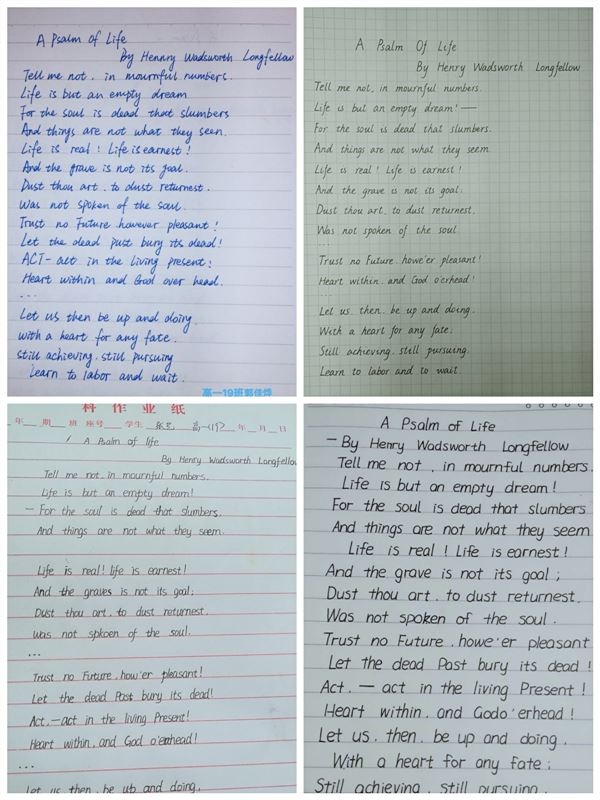 A Psalm of Life
By Hennry Wadsworth Longfellow
Tell me not, in mournful numbers.
Life is but an empty dream
For the soul is dead that slumbers
And things are not what they seen.
Life is real! Life is earnest!
And the grave is not its goal.
Dust thou art. to dust returnest.
Was not spoken of the soul.
Trust no Future. however pleasant!
Let the dead past bury its dead!
ACT-act in the living present!
Heart within and God over head.
...
Let us then be up and doing.
with a heart for any fate.
still achieving. still pursuing
Learn to labor and wait.
高一19班郭佳烨
A Psalm Of Life
By Henry Wadsworth Longfellow
Tell me not, in mournful numbers.
Life is but an empty dream! —
For the soul is dead that slumbers.
And things are not what they seem
Life is real! Life is earnest!
And the grave is not its goal;
Dust thou art. to dust returnest.
Was not spoken of the soul.
...
Trust no Future. howe'er pleasant!
Heart within. and God o'erhead!
Let us. then. be up and doing.
With a heart for any fate;
Still achieving. still pursuing.
Learn to labor and to wait.
科作业纸
年 期 班 座号 学生 高一(19) 年 月 日
A Psalm of life
By Henry Wadsworth Longfellow
Tell me not. in mournful numbers.
Life is but an empty dream!
— For the soul is dead that slumbers.
And things are not what they seem.
Life is real! life is earnest!
And the graves is not its goal;
Dust thou art. to dust returnest.
Was not spkoen of the soul.
...
Trust no Future. how'er pleasant!
Let the dead Past bury its dead!
Act.—act in the living Present!
Heart within. and God o'erhead!
Let us. then. be up and doing.
A Psalm of Life
— By Henry Wadsworth Longfellow
Tell me not , in mournful numbers.
Life is but an empty dream!
For the soul is dead that slumbers
And things are not what they seem
Life is real! Life is earnest!
And the grave is not its goal;
Dust thou art. to dust returnest.
Was not spoken of the soul.
Trust no Future. howe'er pleasant
Let the dead Past bury its dead!
Act. — act in the living Present!
Heart within. and Godo'erhead!
Let us. then. be up and doing.
With a heart for any fate;
Still achieving. still pursuing.